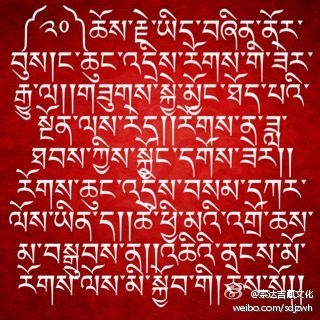 ༼༢༠༽ཆོས་རྗེ་ཡིད་བཞིན་ནོར་
བུས།ང་ཆུང་འདྲིས་རོགས་གི་ཟེར་
རྒྱུ་ལ།།གཟུགས་སྐྱེ་མྱོང་ཐོད་པའི་
སྔོན་ལས་རེད།།རོགས་ན་ཟླ་
ཐབས་ཀྱིས་སྐྱོང་དགོས་ཟེར།།
རོགས་ཆུང་འདྲེས་བསམ་དཀར་
ལོས་ཡིན་ད།།ཚེ་ཕྱི་མའི་འགྲོ་ཆས་
མ་བསྒྲུབས་ན།།འཆིའི་ནངས་མོ་
རོགས་ལོས་མི་སྐྱོབ་གི།ངེས་སོ།།
@宗达吉祥文化
weibo.com/sdjzwh